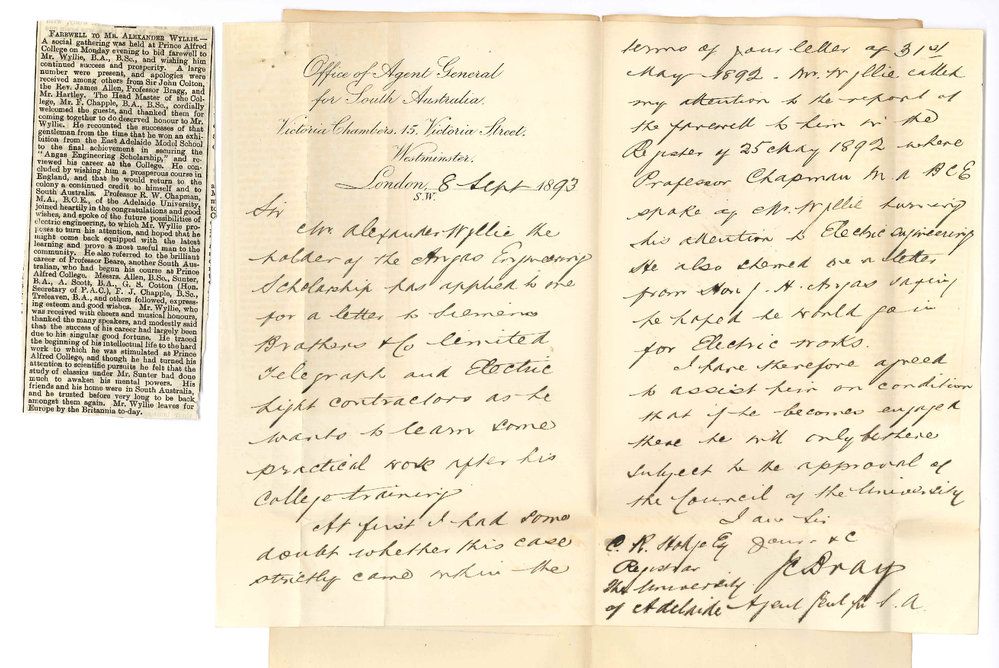 FAREWELL TO MR. ALEXANDER WYLLIE.—
A social gathering was held at Prince Alfred
College on Monday evening to bid farewell to
Mr. Wyllie, B.A., B.Sc., and wishing him
continued success and prosperity. A large
number were present, and apologies were
received among others from Sir John Colton,
the Rev. James Allen, Professor Bragg, and
Mr. Hartley. The Head Master of the Col-
lege, Mr. F. Chapple, B.A., B.Sc., cordially
welcomed the guests, and thanked them for
coming together to do deserved honour to Mr.
Wyllie. He recounted the successes of that
gentleman from the time that he won an exhi-
bition from the East Adelaide Model School
to the final achievement in securing the
"Angas Engineering Scholarship," and re-
viewed his career at the College. He con-
cluded by wishing him a prosperous course in
England, and that he would return to the
colony a continued credit to himself and to
South Australia. Professor R. W. Chapman,
M.A., B.C.E., of the Adelaide University,
joined heartily in the congratulations and good
wishes, and spoke of the future possibilities of
electric engineering, to which Mr. Wyllie pro-
poses to turn his attention, and hoped that he
might come back equipped with the latest
learning and prove a most useful man to the
community. He also referred to the brilliant
career of Professor Beare, another South Aus-
tralian, who had begun his course at Prince
Alfred College. Messrs. Allen, B.Sc., Sunter,
B.A., A. Scott, B.A., G. S. Cotton (Hon.
Secretary of P.A.C.), F. J. Chapple, B.Sc.,
Treleaven, B.A., and others followed, express-
ing esteem and good wishes. Mr. Wyllie, who
was received with cheers and musical honours,
thanked the many speakers, and modestly said
that the success of his career had largely been
due to his singular good fortune. He traced
the beginning of his intellectual life to the hard
work to which he was stimulated at Prince
Alfred College, and though he had turned his
attention to scientific pursuits he felt that the
study of classics under Mr. Sunter had done
much to awaken his mental powers. His
friends and his home were in South Australia,
and he trusted before very long to be back
amongst them again. Mr. Wyllie leaves for
Europe by the Britannia to-day.
Office of Agent General
for South Australia.
Victoria Chambers, 15, Victoria Street,
Westminster.
London, 8 Sept 1893
S.W.
Sir
Mr. Alexander Wyllie the
holder of the Angas Engineering
Scholarship has applied to me
for a letter to Siemens
Brothers & Co Limited
Telegraph and Electric
Light contractors as he
wants to learn some
practical work after his
College training
At first I had some
doubt whether this case
strictly came within the
terms of your letter of 31st
May 1892. Mr. Wyllie called
my attention to the report of
the farewell to him in the
Register of 25 May 1892 where
Professor Chapman M A BCE
spoke of Mr. Wyllie turning
his attention to Electric engineering
He also shewed me a letter
from Hon J. H. Angas saying
he hoped he would go in
for Electric works.
I have therefore agreed
to assist him on condition
that if he becomes engaged
there he will only be there
subject to the approval of
the Council of the University
I am Sir
Yours &c
C. R. Hodge Esq
Registrar
The University
of Adelaide
J C Bray
Agent Genl for S.A.